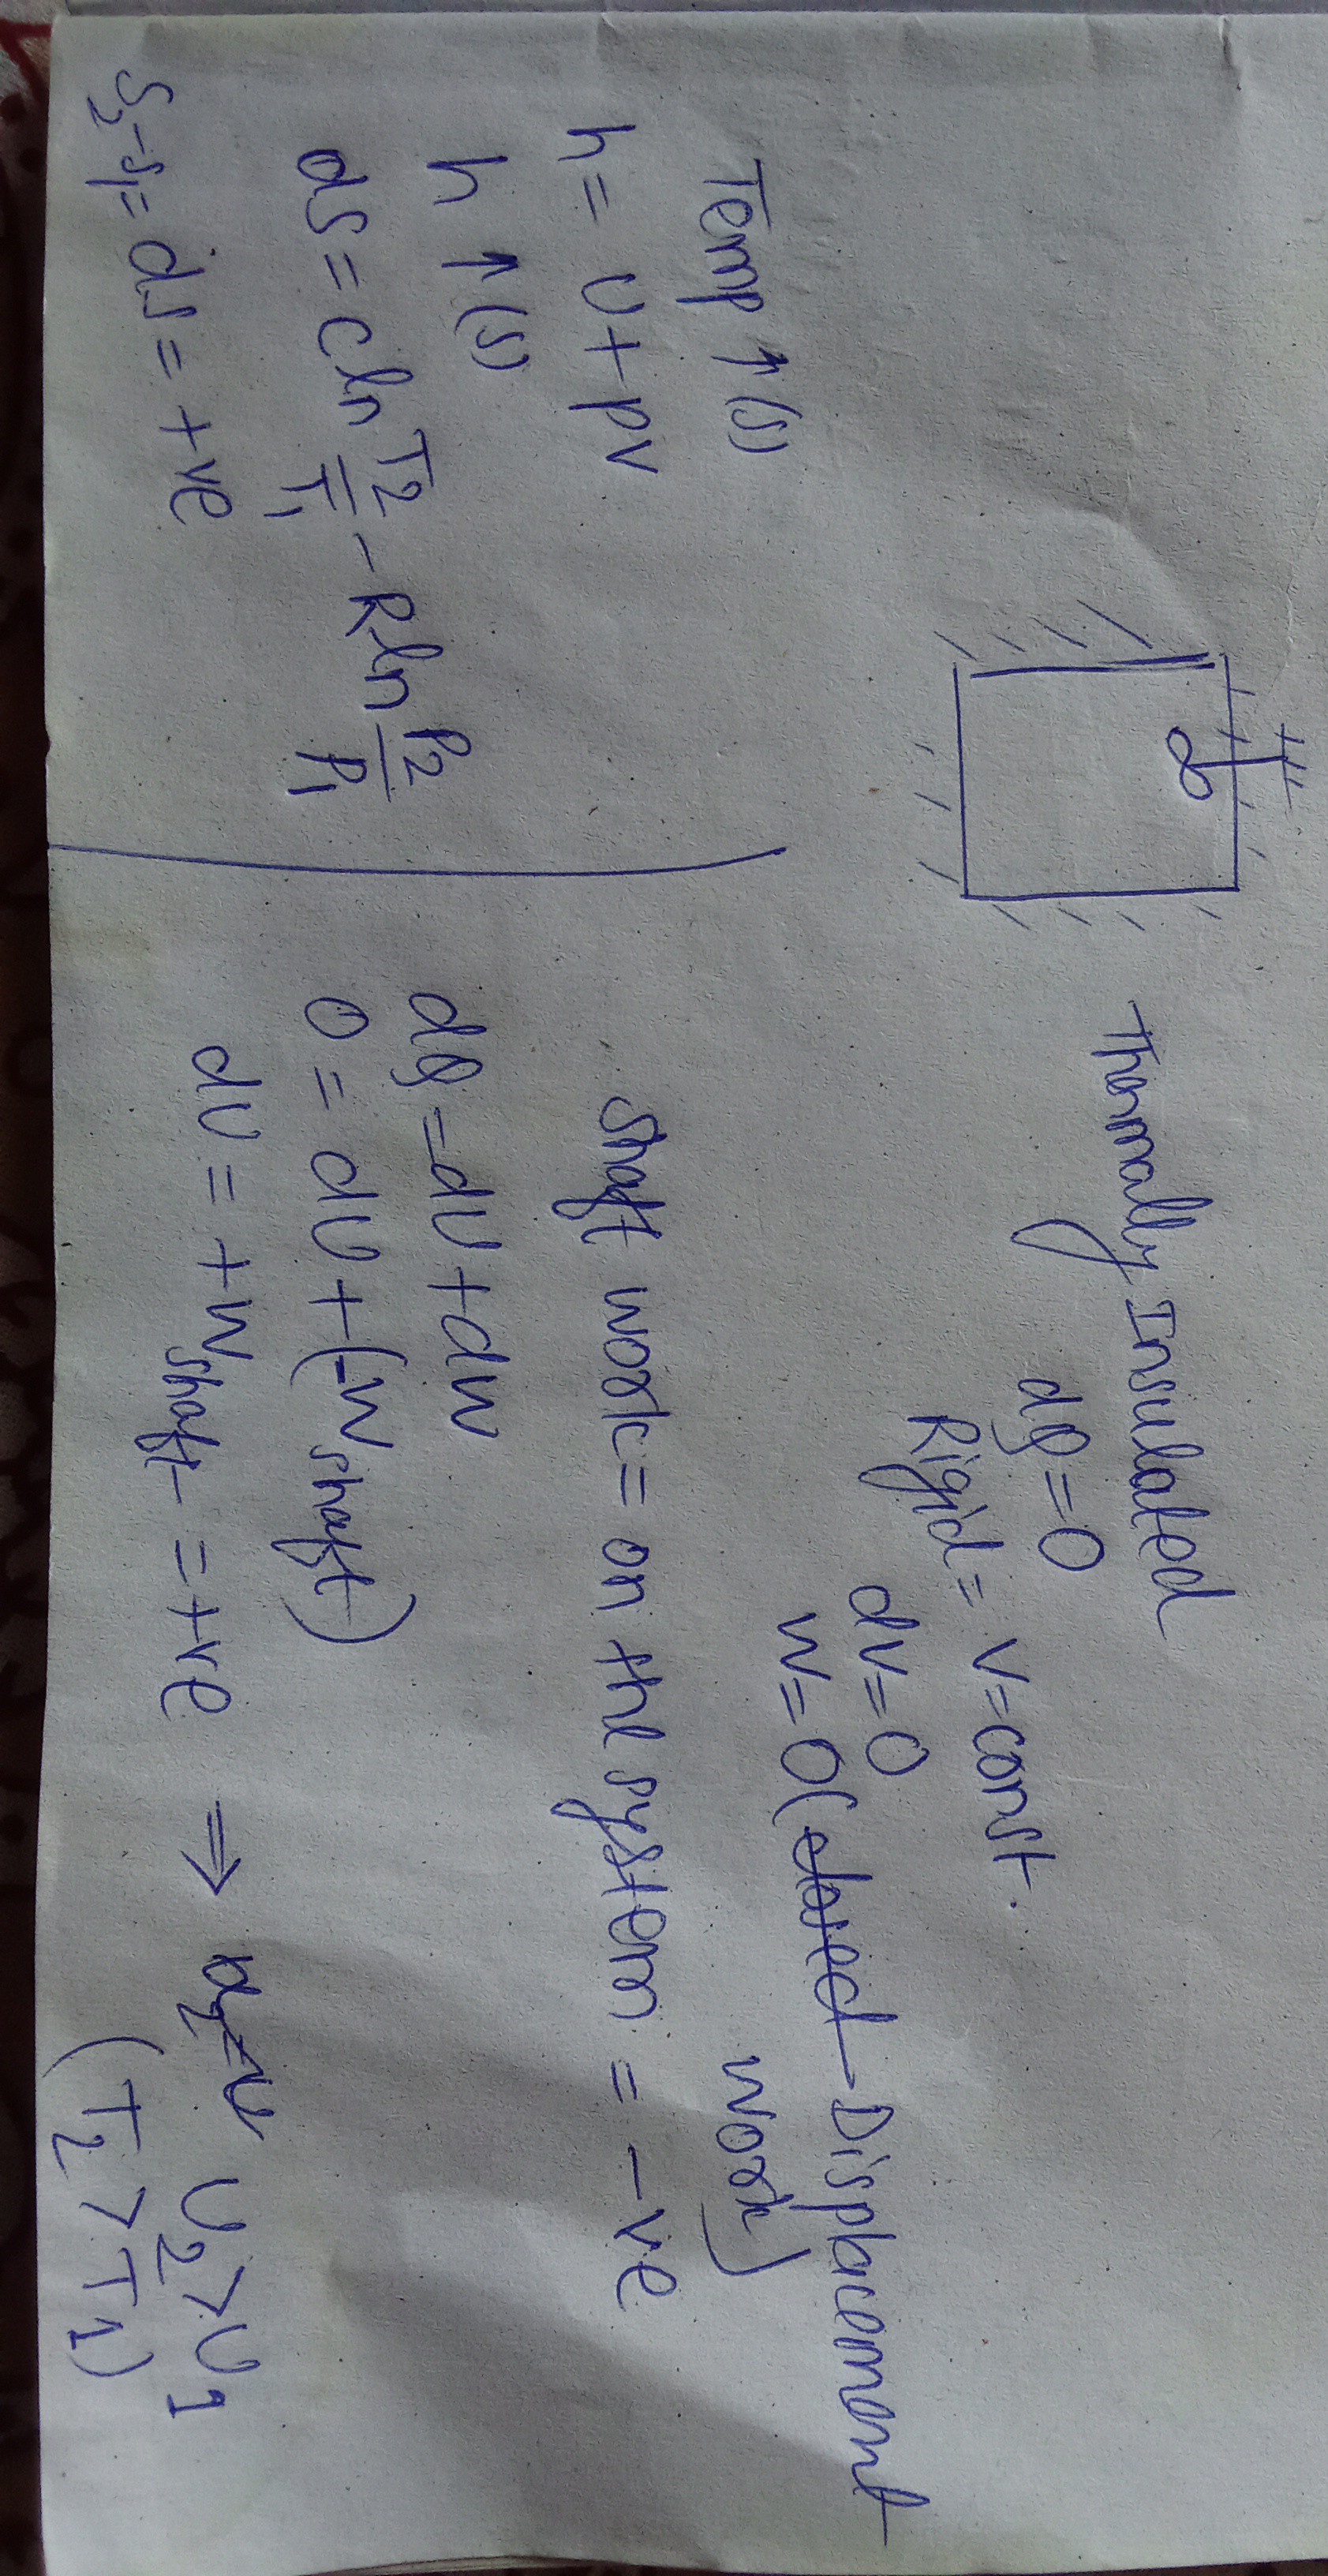 Thermally Insulated
dQ = 0
Rigid = V = const.
dv = 0
W = 0 (closed Displacement
work)
shaft work = on the system = -ve
dQ = dU + dW
0 = dU + (-Wshaft)
dU = +Wshaft = +ve ⇒ U2 > U1
(T2 > T1)
Temp ↑(s)
h = U + PV
h ↑(s)
ds = c ln T2/T1 - R ln P2/P1
S2-S1 = ds = +ve